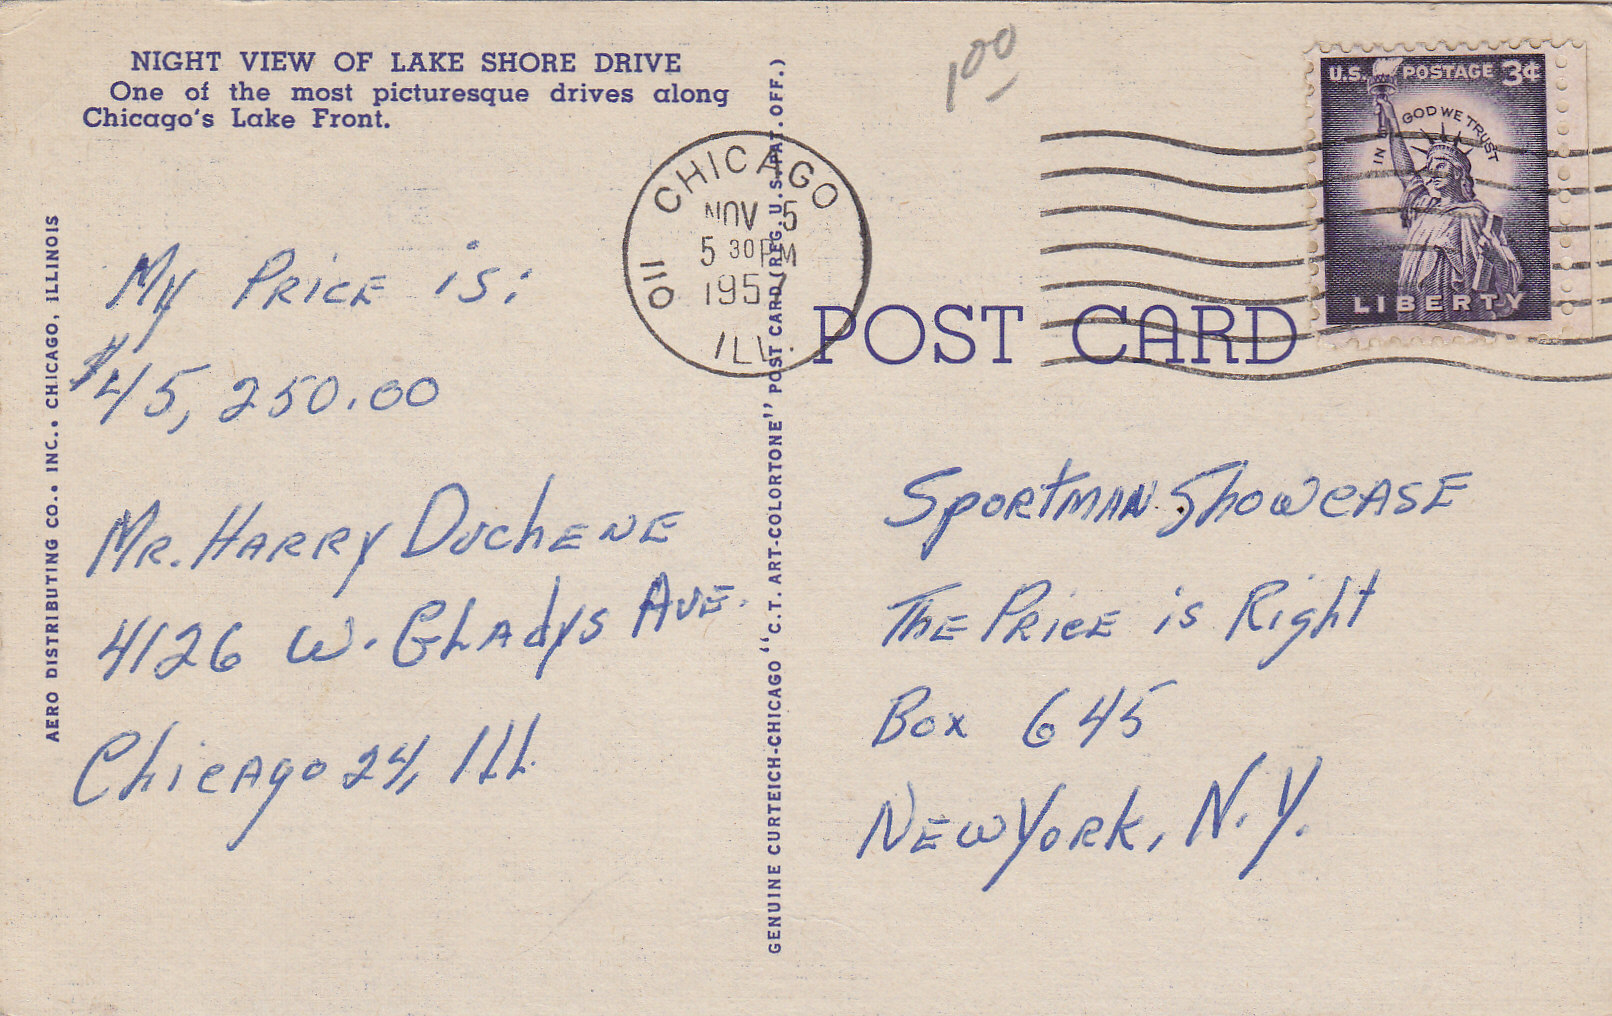 NIGHT VIEW OF LAKE SHORE DRIVE
One of the most picturesque drives along
Chicago's Lake Front.
AERO DISTRIBUTING CO., INC., CHICAGO, ILLINOIS
My Price is:
$45,250.00
Mr. Harry Duchene
4126 W. Gladys Ave.
Chicago 24, Ill.
GENUINE CURTEICH-CHICAGO "C.T. ART-COLORTONE" POST CARD (REG. U.S. PAT. OFF.)
CHICAGO
NOV 5
5 30 PM
1957
ILL.
011
1 00
POST CARD
U.S. POSTAGE 3¢
IN GOD WE TRUST
LIBERTY
Sportman Showcase
The Price is Right
Box 645
New York, N.Y.